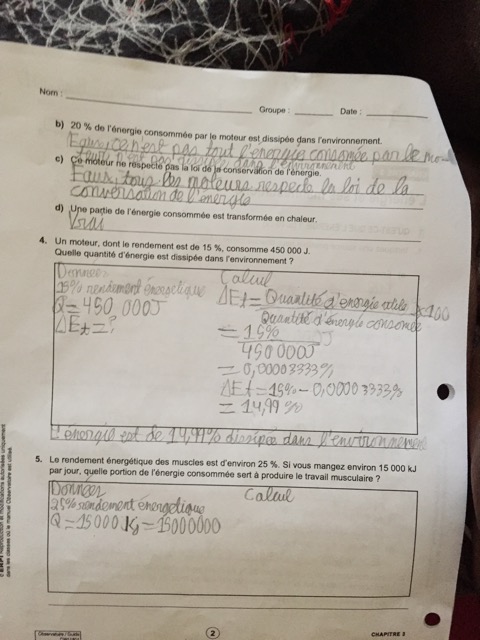 Nom :
Groupe : Date :
b) 20 % de l'énergie consommée par le moteur est dissipée dans l'environnement.
Faux, ce n'est pas tout l'énergie consomée par le mo
dissipée dans l'environnement
c) Ce moteur ne respecte pas la loi de la conservation de l'énergie.
Faux, tous les moteurs respecte la loi de la
conversation de l'énergie
d) Une partie de l'énergie consommée est transformée en chaleur.
Vrai
4. Un moteur, dont le rendement est de 15 %, consomme 450 000 J.
Quelle quantité d'énergie est dissipée dans l'environnement ?
Données
15% rendement énergétique
Q = 450 000J
ΔEt = ?
Calcul
ΔEt = Quantité d'énergie utile x100
Quantité d'énergie consomée
= 15%
450 000J
= 0,00003333%
ΔEt = 15% - 0,00003333%
= 14,99 %
L'énergie est de 14,99% dissipée dans l'environnement
5. Le rendement énergétique des muscles est d'environ 25 %. Si vous mangez environ 15 000 kJ
par jour, quelle portion de l'énergie consommée sert à produire le travail musculaire ?
Données
25% rendement énergétique
Q = 15000 Kj = 15000000
Calcul
© ERPI Reproduction et modifications autorisées uniquement
dans les classes où le manuel Observatoire est utilisé.
Observatoire / Guide
2
CHAPITRE 3